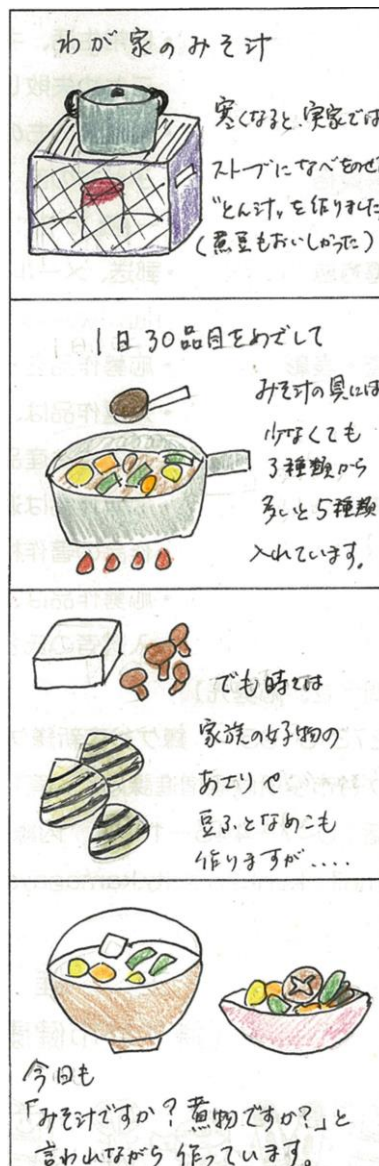 わが家のみそ汁
寒くなると、実家では
ストーブになべをのせ
"とん汁"を作りました
(煮豆もおいしかった)
1日30品目をめざして
みそ汁の具には
少なくても
3種類から
多いと5種類
入れています。
でも時々は
家族の好物の
あさりや
豆ふとなめこも
作りますが....
今日も
「みそ汁ですか?煮物ですか?」と
言われながら作っています。